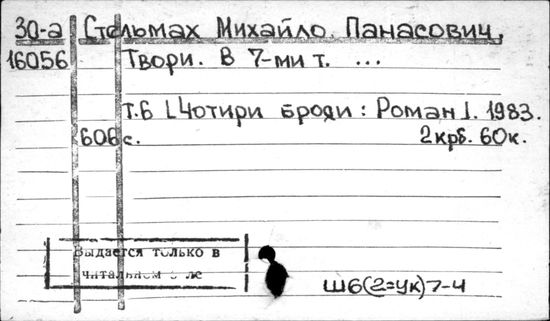 30-а Стельмах Михайло Панасович.
16056 Твори. В 7-ми т. ...
Т.6 [Чотири броди: Роман]. 1983.
606 с. 2 крб. 60к.
Выдается только в
читальном
Ш6(2=Ук)7-4